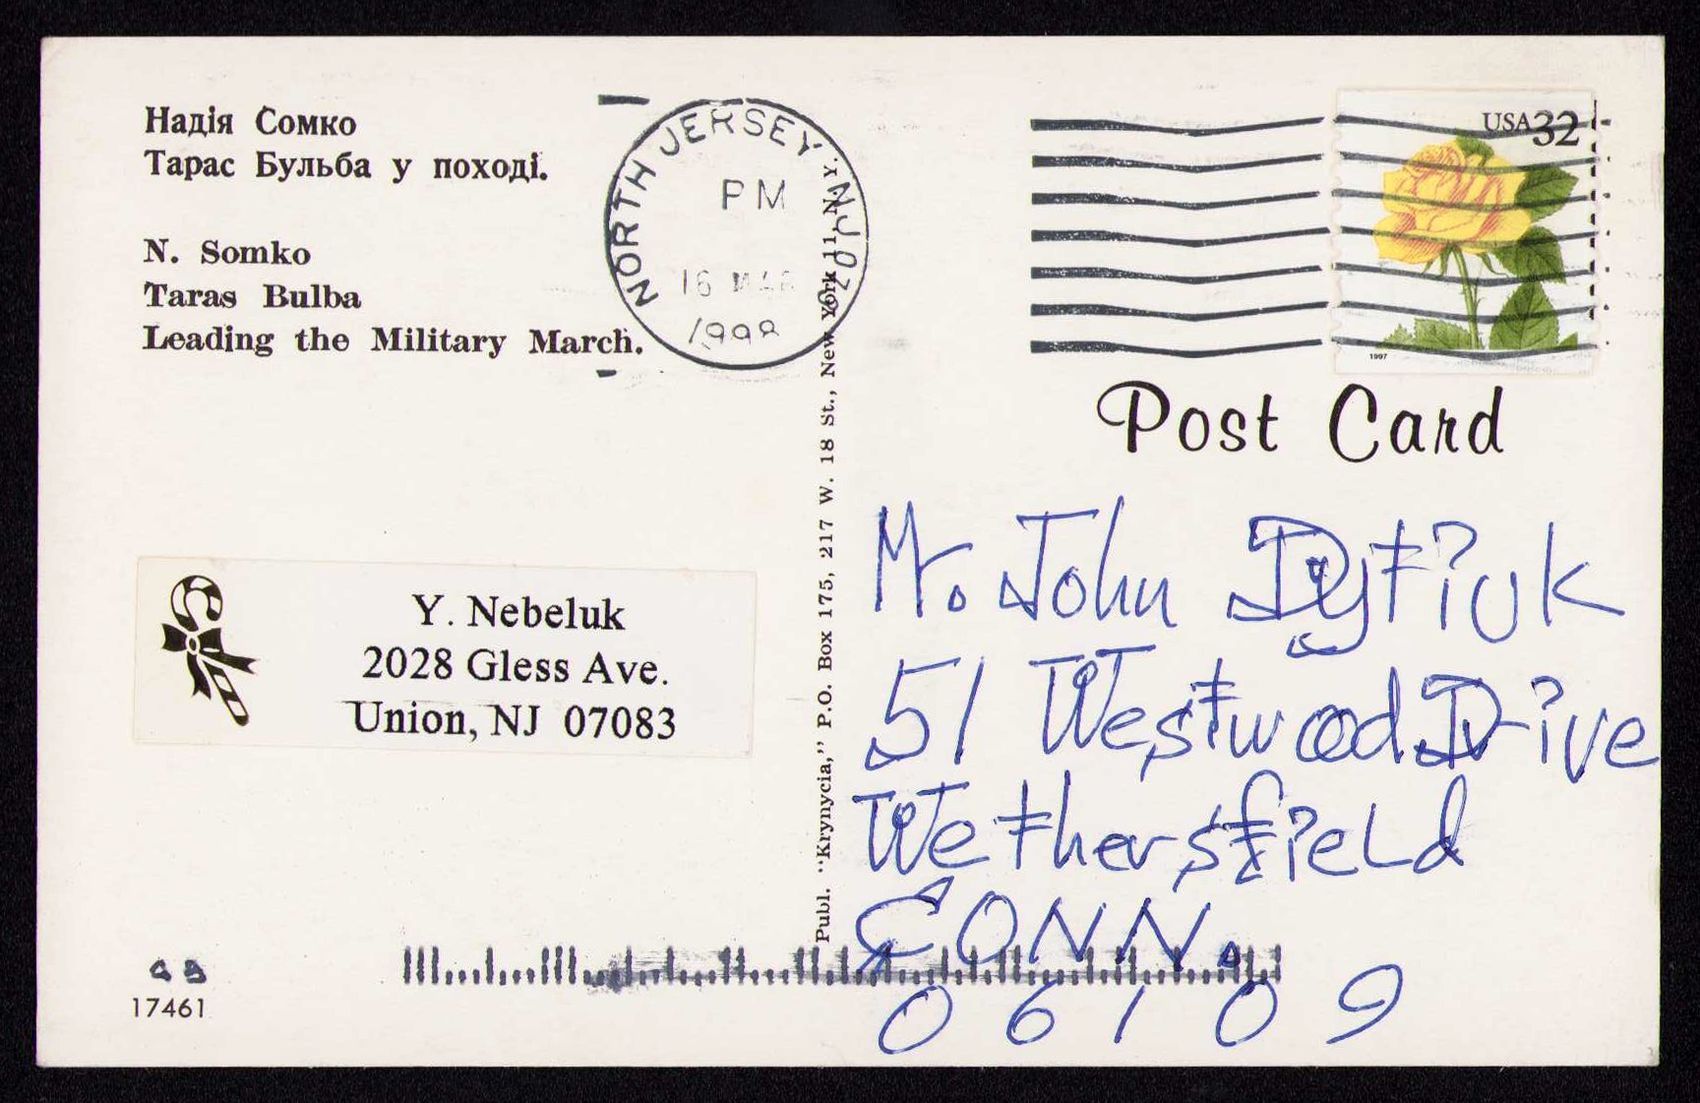 Надія Сомко
Тарас Бульба у поході.
N. Somko
Taras Bulba
Leading the Military March.
NORTH JERSEY NJ 07
PM
16 MAR
1998
USA 32
1997
Post Card
Publ. "Krynycia," P.O. Box 175, 217 W. 18 St., New York 11, N.Y.
Y. Nebeluk
2028 Gless Ave.
Union, NJ 07083
Mr. John Dytiuk
51 Westwood Drive
Wethersfield
CONN.
06109
17461